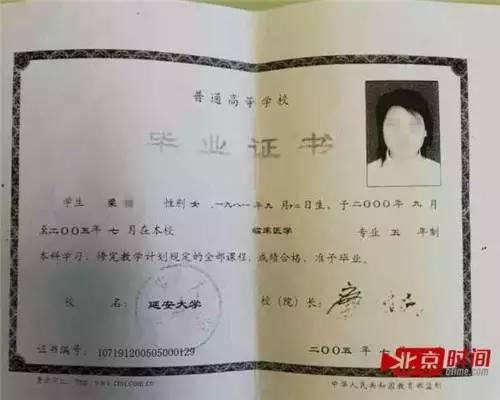 普通高等学校
毕业证书
学生 梁 性别 女 ,一九八一年九月十二日生,于二〇〇〇年 九月
至二〇〇五年 七月在本校 临床医学 专业 五 年制
本科学习,修完教学计划规定的全部课程,成绩合格,准予毕业。
校 名: 延安大学 校(院)长:
证书编号: 107191200505000129 二〇〇五年 七
北京时间
btime.com
查询网址: http://www.chsi.com.cn 中华人民共和国教育部监制